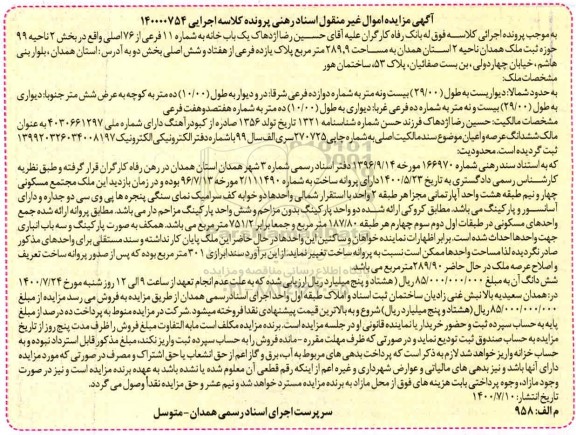 آگهی مزایده اموال غیر منقول اسناد رهنی پرونده کلاسه اجرایی ۱۴۰۰۰۰۷۵۴
به موجب پرونده اجرائی کلاسه فوق له بانک رفاه کارگران علیه آقای حسین رضا اژدهاک یک باب خانه به شماره ۱۱ فرعی از ۷۶اصلی واقع در بخش ۲ ناحیه ۹۹
حوزه ثبت ملک همدان ناحیه ۲ استان همدان به مساحت ۲۸۹,۹ متر مربع پلاک یازده فرعی از هفتاد و شش اصلی بخش دو به آدرس: استان همدان، بلوار بنی
هاشم، خیابان چهاردولی، بن بست صفائیان، پلاک ۵۳، ساختمان هور
مشخصات ملک:
به حدود شمالا: دیواریست به طول (۲۹/۰۰) بیست و نه متر به شماره دوازده فرعی شرقا: در و دیوار به طول (۱۰/۰۰) ده متر به کوچه به عرض شش متر جنوبا: دیواری
به طول (۲۹/۰۰) بیست و نه متر به شماره ده فرعی غربا: دیواری به طول (۱۰/۰۰) ده متر به شماره هفتصد و هفت فرعی
مشخصات مالکیت: حسین رضا اژدهاک فرزند حسن شماره شناسنامه ۱۳۲۱ تاریخ تولد ۱۳۵۶ صادره از کبودرآهنگ دارای شماره ملی ۴۰۳۰۶۶۱۲۹۷ به عنوان
مالک ششدانگ عرصه و اعیان موضوع سند مالکیت اصلی به شماره چاپی ۲۷۰۷۲۵ سری الف سال ۹۹ با شماره دفتر الکترونیکی الکترونیک ۱۳۹۹۲۰۳۲۶۰۳۴۰۰۸۱۹۷
ثبت گردیده است. محدودیت:
که به استناد سند رهنی شماره ۱۶۶۹۷۰ مورخه ۱۳۹۶/۹/۱۴ دفتر اسناد رسمی شماره ۳ شهر همدان استان همدان در رهن رفاه کارگران قرار گرفته و طبق نظریه
کارشناس رسمی دادگستری به تاریخ ۱۴۰۰/۵/۲۳ دارای پروانه ساخت به شماره ۲/۱۱۱۴۹۰ مورخه ۹۶/۷/۱۳ بوده و در زمان بازدید این ملک مجتمع مسکونی
چهار و نیم طبقه هشت واحد آپارتمانی مجزا هر طبقه ۲ واحد با استقرار شمالی واحدها دو خوابه کف سرامیک نمای سنگی پنجره ها پی وی سی دو جداره و دارای
آسانسور و پارکینگ می باشد. مطابق کروکی ارائه شده دو واحد پارکینگ بدون مزاحم و شش واحد پارکینگ مزاحم دار می باشد. مطابق پروانه ارائه شده جمع
واحدهای مسکونی در طبقات اول دوم سوم چهارم هر طبقه ۱۸۷/۸۰ متر مربع و جمعا برابر ۷۵۱/۲ متر مربع می باشد. همکف به صورت پارکینگ و سه باب انباری
جهت واحدها احداث شده است. برابر اظهارات نماینده خواهان و ساکنین این واحدها در حال حاضر این ملک پایان کار نداشته و سند مستقلی برای واحدهای مذکور
صادر نگردیده لذا مساحت واحدها ممکن است نسبت به پروانه ساخت تغییر نماید. از این بر آورد سند ابرازی ۳۰۱ متر مربع بوده که پس از صدور پروانه ساخت تعریف
و اصلاح عرصه ملک در حال حاضر ۲۸۹/۹۰ متر مربع می باشد.
شش دانگ آن به مبلغ ۸۵/۰۰۰/۰۰۰/۰۰۰ ریال (هشتاد و پنج میلیارد ریال) ارزیابی شده که به علت عدم انجام تعهد از ساعت ۹ الی ۱۲ روز شنبه مورخ ۱۴۰۰/۷/۲۴
در: همدان سعیدیه بالا نبش غنی زادیان ساختمان ثبت اسناد و املاک طبقه اول واحد اجرای اسناد رسمی همدان از طریق مزایده به فروش می رسد مزایده از مبلغ
۸۵/۰۰۰/۰۰۰/۰۰۰ ریال (هشتاد و پنج میلیارد ریال) شروع و به بالاترین قیمت پیشنهادی نقدا فروخته میشود. شرکت در مزایده منوط به پرداخت ده درصد از مبلغ
پایه به حساب سپرده ثبت و حضور خریدار یا نماینده قانونی او در جلسه مزایده است. برنده مزایده مکلف است مابه التفاوت مبلغ فروش را ظرف مدت پنج روز از تاریخ
مزایده به حساب صندوق ثبت تودیع نماید و در صورتی که ظرف مهلت مقرره - مانده فروش را به حساب سپرده ثبت واریز نکند، مبلغ مذکور قابل استرداد نبوده و به
حساب خزانه واریز خواهد شد لازم به ذکر است که پرداخت بدهی های مربوط به آب، برق و گاز اعم از حق انشعاب یا حق اشتراک و مصرف در صورتی که مورد مزایده
دارای آنها باشد و نیز بدهی های مالیاتی و عوارض شهرداری و غیره اعم از اینکه رقم قطعی آن معلوم شده یا نشده باشد به عهده برنده مزایده است و نیز در صورت
وجود مازاد، وجوه پرداختی بابت هزینه های فوق از محل مازاد به برنده مزایده مسترد خواهد شد و نیم عشر و حق مزایده نقداً وصول می گردد.
تاریخ انتشار: ۱۴۰۰/۷/۱۰
م الف: ۹۵۸
سرپرست اجرای اسناد رسمی همدان - متوسل